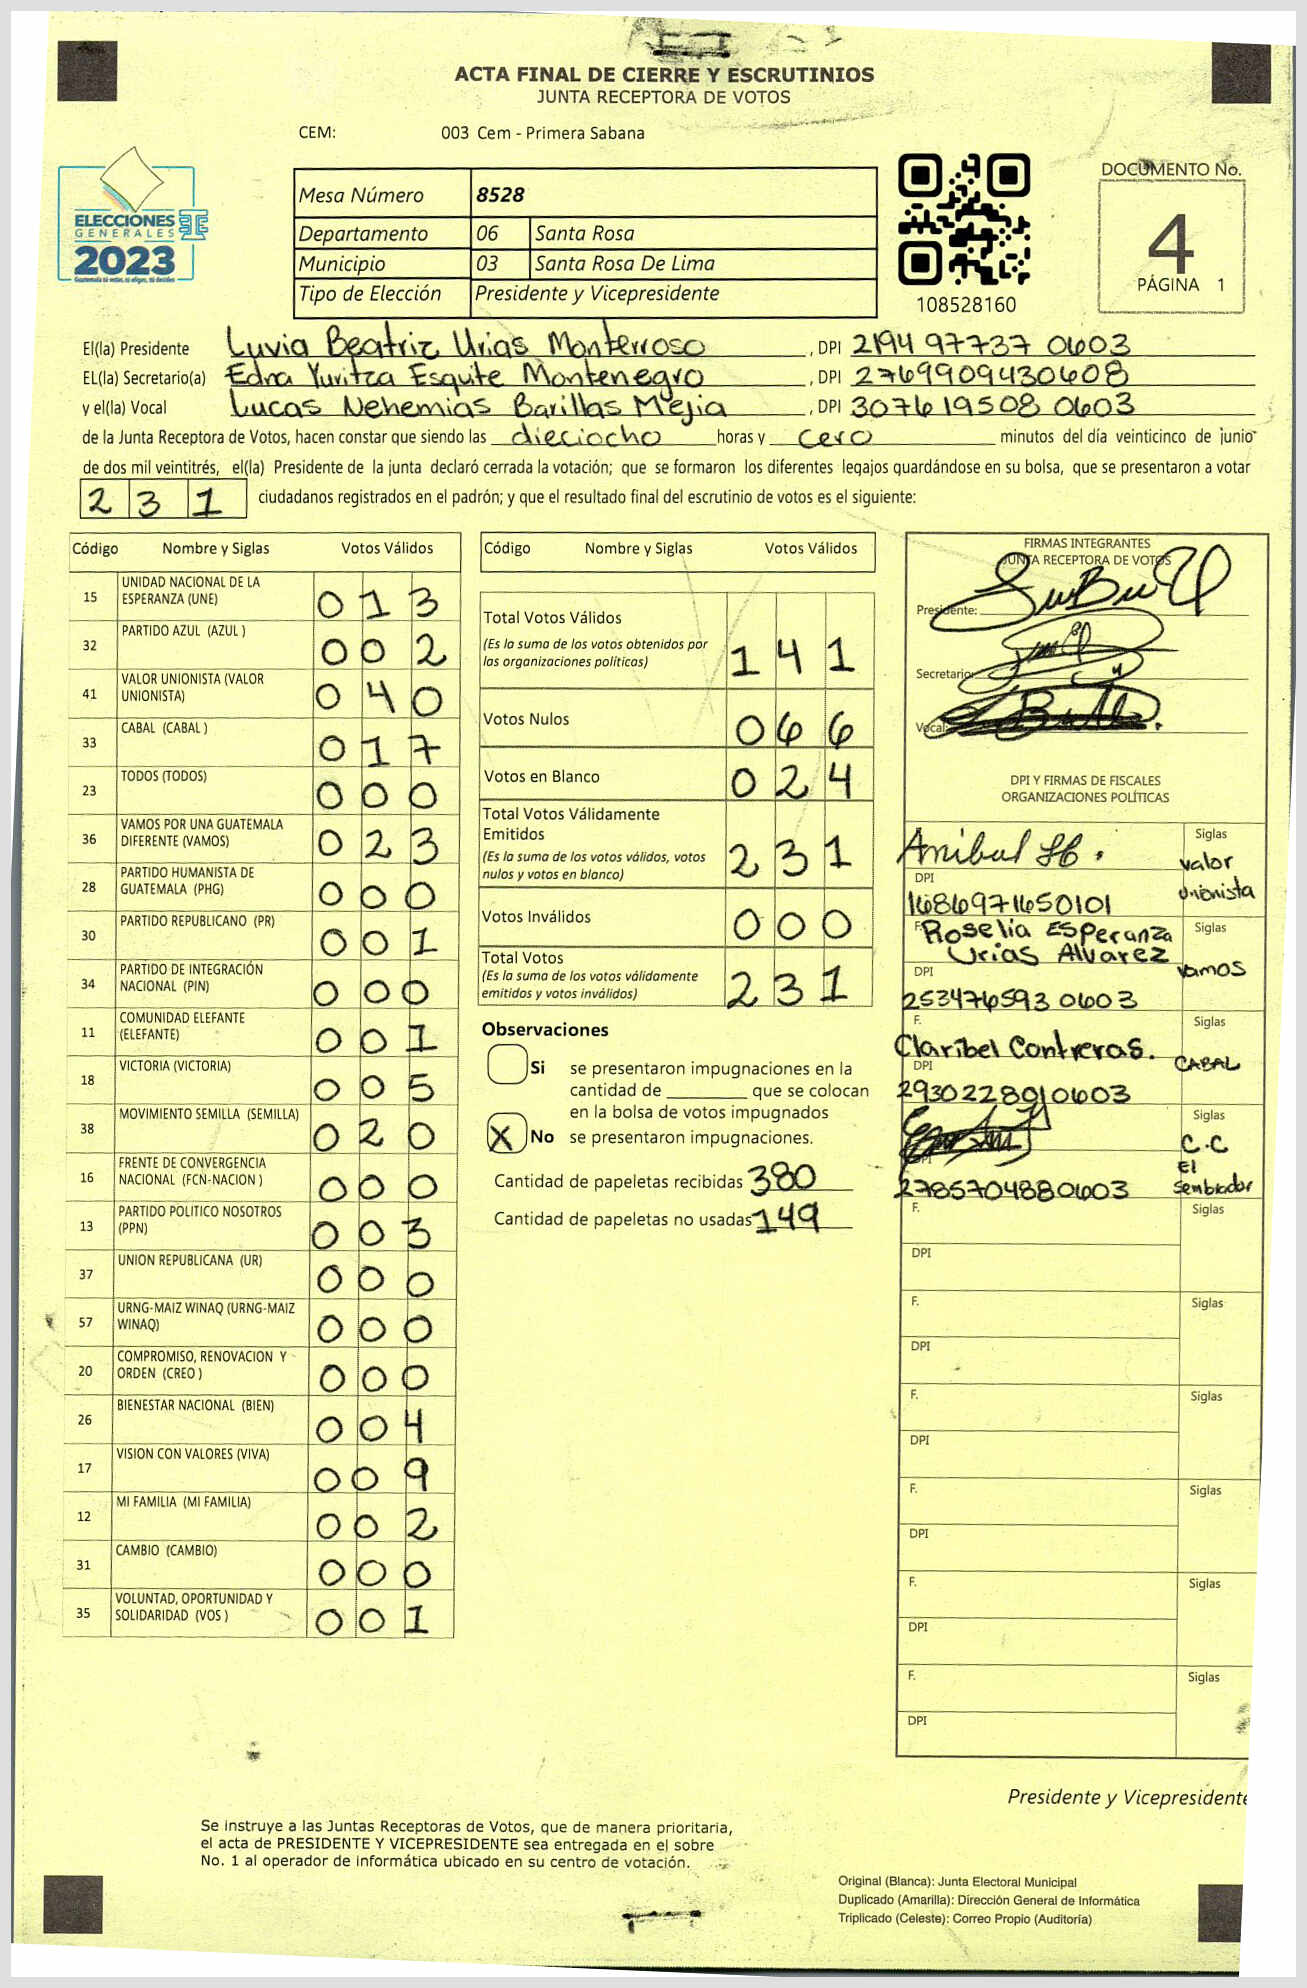 ACTA FINAL DE CIERRE Y ESCRUTINIOS
JUNTA RECEPTORA DE VOTOS
CEM: 003 Cem - Primera Sabana
ELECCIONES
GENERALES
2023
Mesa Número 8528
Departamento 06 Santa Rosa
Municipio 03 Santa Rosa De Lima
Tipo de Elección Presidente y Vicepresidente
108528160
DOCUMENTO No.
4
PÁGINA 1
El(la) Presidente Luvia Beatriz Urias Monterroso, DPI 2194 97737 0603
EL(la) Secretario(a) Edna Yuritza Esquite Montenegro, DPI 2769909430608
y el(la) Vocal Lucas Nehemias Barillas Mejia, DPI 307619508 0603
de la Junta Receptora de Votos, hacen constar que siendo las dieciocho horas y cero minutos del día veinticinco de junio
de dos mil veintitrés, el(la) Presidente de la junta declaró cerrada la votación; que se formaron los diferentes legajos guardándose en su bolsa, que se presentaron a votar
231 ciudadanos registrados en el padrón; y que el resultado final del escrutinio de votos es el siguiente:
Código Nombre y Siglas Votos Válidos
15 UNIDAD NACIONAL DE LA ESPERANZA (UNE) 013
32 PARTIDO AZUL (AZUL ) 002
41 VALOR UNIONISTA (VALOR UNIONISTA) 040
33 CABAL (CABAL ) 017
23 TODOS (TODOS) 000
36 VAMOS POR UNA GUATEMALA DIFERENTE (VAMOS) 023
28 PARTIDO HUMANISTA DE GUATEMALA (PHG) 000
30 PARTIDO REPUBLICANO (PR) 001
34 PARTIDO DE INTEGRACIÓN NACIONAL (PIN) 000
11 COMUNIDAD ELEFANTE (ELEFANTE) 001
18 VICTORIA (VICTORIA) 005
38 MOVIMIENTO SEMILLA (SEMILLA) 020
16 FRENTE DE CONVERGENCIA NACIONAL (FCN-NACION ) 000
13 PARTIDO POLITICO NOSOTROS (PPN) 003
37 UNION REPUBLICANA (UR) 000
57 URNG-MAIZ WINAQ (URNG-MAIZ WINAQ) 000
20 COMPROMISO, RENOVACION Y ORDEN (CREO ) 000
26 BIENESTAR NACIONAL (BIEN) 004
17 VISION CON VALORES (VIVA) 009
12 MI FAMILIA (MI FAMILIA) 002
31 CAMBIO (CAMBIO) 000
35 VOLUNTAD, OPORTUNIDAD Y SOLIDARIDAD (VOS ) 001
Código Nombre y Siglas Votos Válidos
Total Votos Válidos
(Es la suma de los votos obtenidos por
las organizaciones políticas) 141
Votos Nulos 066
Votos en Blanco 024
Total Votos Válidamente
Emitidos
(Es la suma de los votos válidos, votos
nulos y votos en blanco) 231
Votos Inválidos 000
Total Votos
(Es la suma de los votos válidamente
emitidos y votos inválidos) 231
Observaciones
Si se presentaron impugnaciones en la
cantidad de ________ que se colocan
en la bolsa de votos impugnados
X No se presentaron impugnaciones.
Cantidad de papeletas recibidas 380
Cantidad de papeletas no usadas 149
FIRMAS INTEGRANTES
JUNTA RECEPTORA DE VOTOS
Presidente:
Secretario:
Vocal:
DPI Y FIRMAS DE FISCALES
ORGANIZACIONES POLÍTICAS
Anibal Siglas
valor
unionista
DPI
1686971650101
F. Roselia Esperanza Siglas
Urias Alvarez
DPI vamos
253476593 0603
F. Siglas
Claribel Contreras.
DPI CABAL
2930228010603
Siglas
C.C
El
Sembrador
DPI
2785704880603
F. Siglas
DPI
F. Siglas
DPI
F. Siglas
DPI
F. Siglas
DPI
F. Siglas
DPI
F. Siglas
DPI
Presidente y Vicepresidente
Se instruye a las Juntas Receptoras de Votos, que de manera prioritaria,
el acta de PRESIDENTE Y VICEPRESIDENTE sea entregada en el sobre
No. 1 al operador de informática ubicado en su centro de votación.
Original (Blanca): Junta Electoral Municipal
Duplicado (Amarilla): Dirección General de Informática
Triplicado (Celeste): Correo Propio (Auditoría)